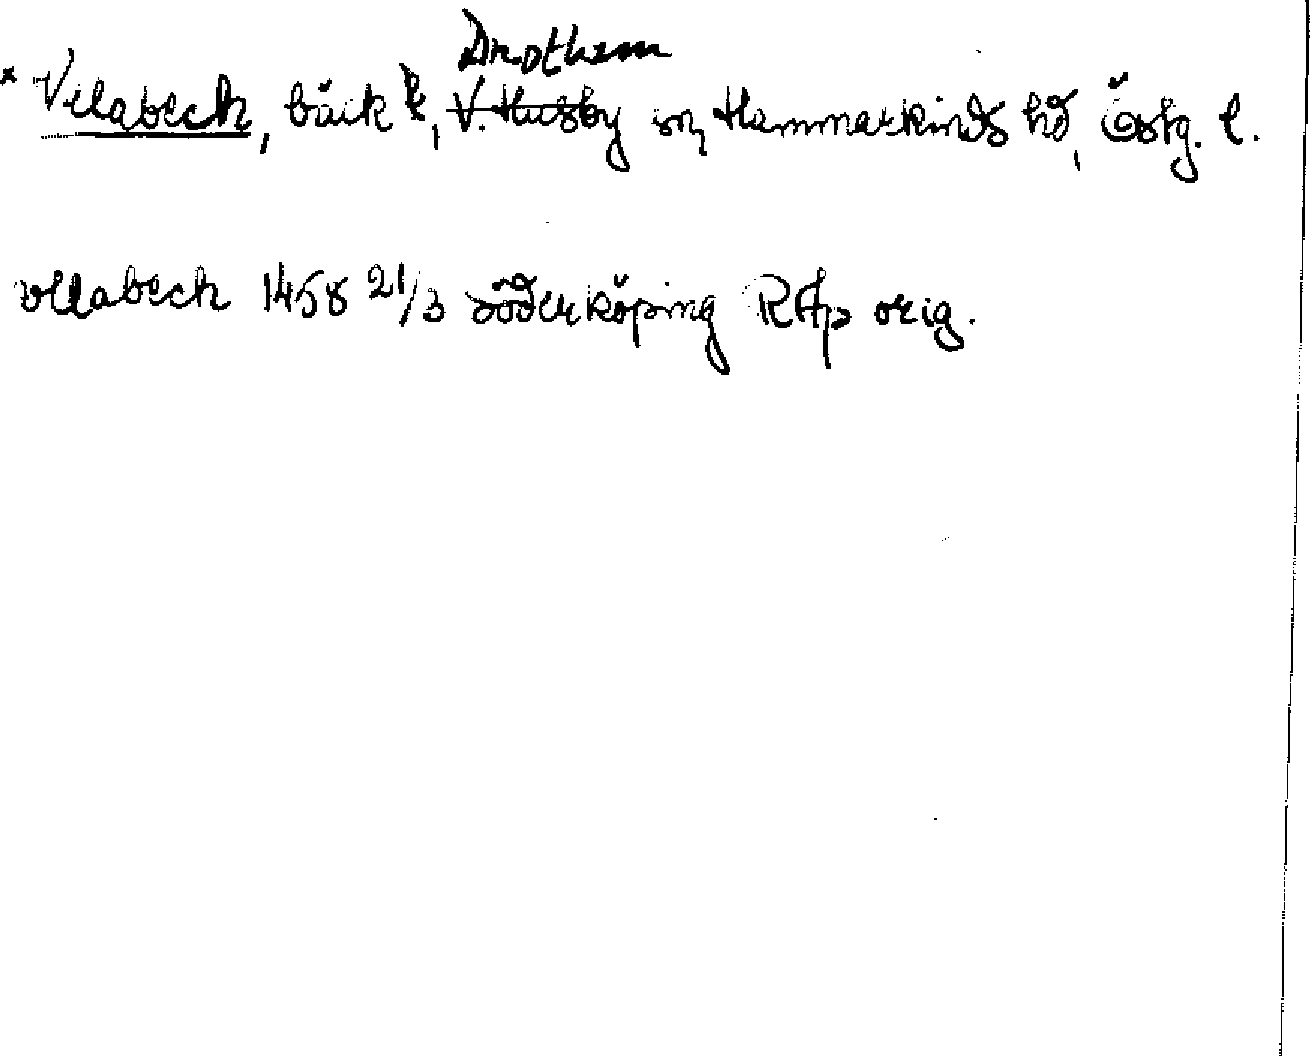 Drothem
* Vllabeck, bäck?, V. Husby sn, Hammarkinds hd, Östg. l.
vllabeck 1458 21/3 söderköping RAp orig.